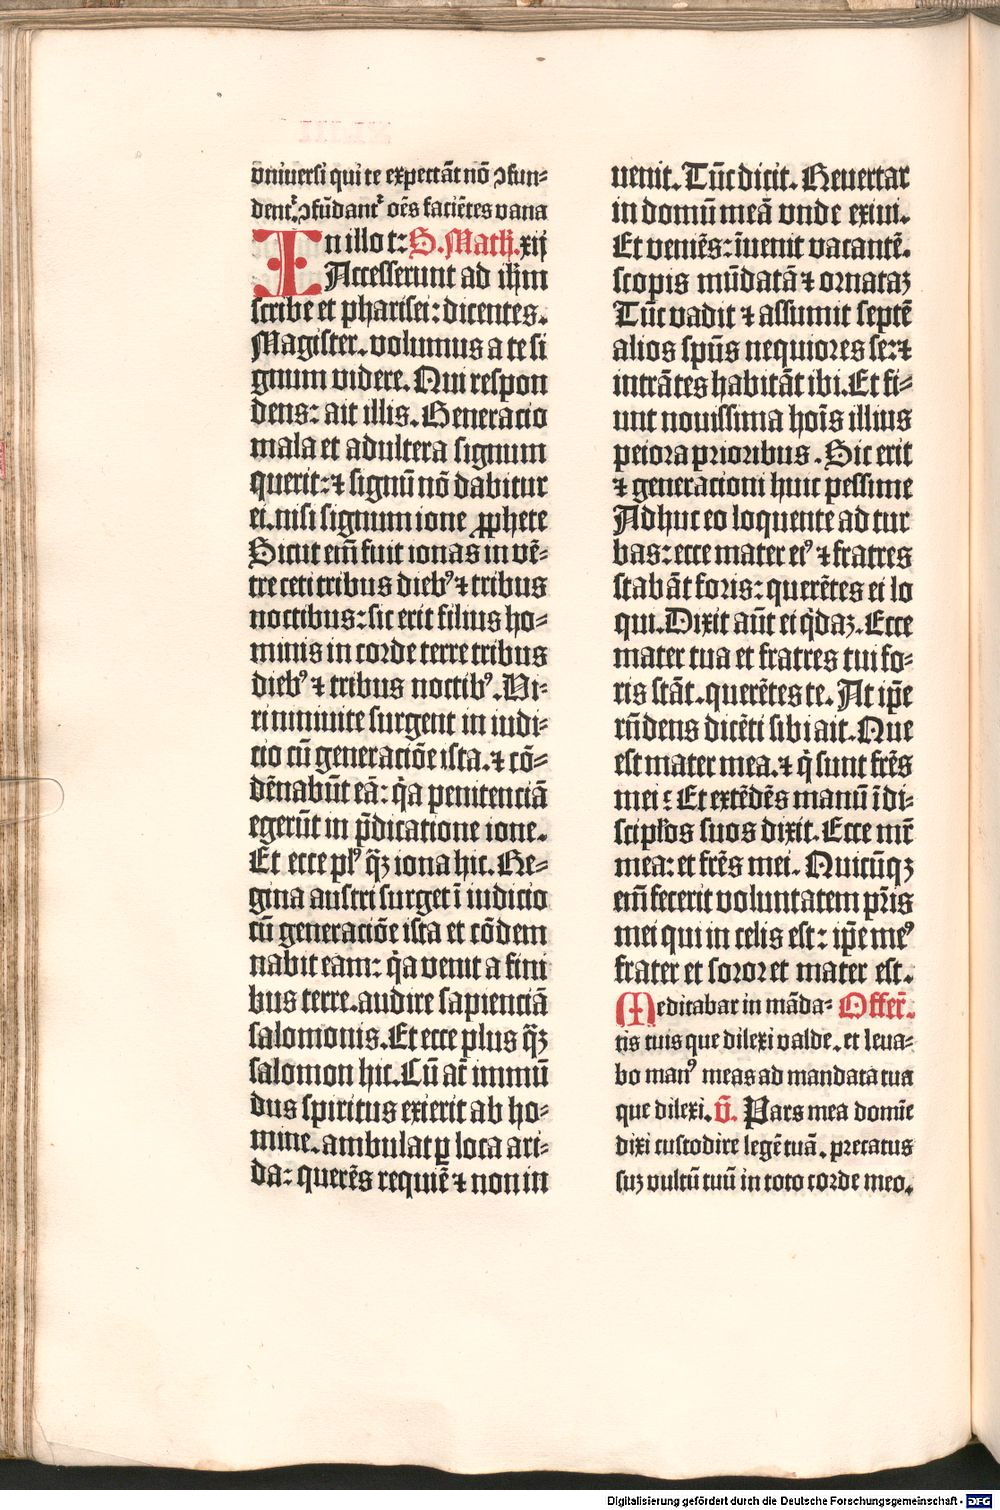 vniuersi qui te expectāt nō ɔfun-
dent᷑.ɔfūdant᷑ oēs faciētes vana
In illo t: S. Math.xij
Accesserunt ad ihm̄
scribe et pharisei: dicentes.
Magister.volumus a te si
gnum videre. Qui respon
dens: ait illis. Generacio
mala et adultera signum
querit: ⁊ signū nō dabitur
ei.nisi signum ione ꝓphete
Sicut em̄ fuit ionas in vē-
tre ceti tribus dieb⁹ ⁊ tribus
noctibus: sic erit filius ho-
minis in corde terre tribus
dieb⁹ ⁊ tribus noctib⁹.Vi-
ri niniuite surgent in iudi-
cio cū generaciōe ista.⁊ cō-
dēnabūt eā: q̇a penitenciā
egerūt in p̄dicatione ione.
Et ecce pl⁹ q̄ꝫ iona hic. Re-
gina austri surget ī iudicio
cū generaciōe ista et cōdem
nabit eam: q̇a venit a fini
bus terre.audire sapienciā
salomonis.Et ecce plus q̄ꝫ
salomon hic.Cū at̄ immū
dus spiritus exierit ab ho-
mine.ambulat ꝑ loca ari-
da: querēs requiē ⁊ non in
uenit.Tūc dicit. Reuertar
in domū meā vnde exiui.
Et veniēs: īuenit vacantē.
scopis mūdatā ⁊ ornataꝫ
Tūc vadit ⁊ assumit septē
alios sp̄us nequiores se: ⁊
intrātes habitāt ibi.Et fi-
unt nouissima hoīs illius
peiora prioribus.Sic erit
⁊ generacioni huic pessime
Adhuc eo loquente ad tur
bas: ecce mater ei⁹ ⁊ fratres
stabāt foris: querētes ei lo
qui.Dixit aūt ei q̇daꝫ.Ecce
mater tua et fratres tui fo-
ris stāt.querētes te. At ip̄e
rn̄dens dicēti sibi ait. Que
est mater mea.⁊ q̇ sunt frēs
mei: Et extēdēs manū ī di-
scipl̄os suos dixit. Ecce mr̄
mea: et frēs mei. Quicūqꝫ
em̄ fecerit voluntatem pr̄is
mei qui in celis est: ip̄e me⁹
frater et soror et mater est.
Meditabar in māda- Offer̄.
tis tuis que dilexi valde.et leua-
bo man⁹ meas ad mandata tua
que dilexi. v̄. Pars mea domīe
dixi custodire legē tuā.precatus
suꝫ vultū tuū in toto corde meo.
Digitalisierung gefördert durch die Deutsche Forschungsgemeinschaft - DFG